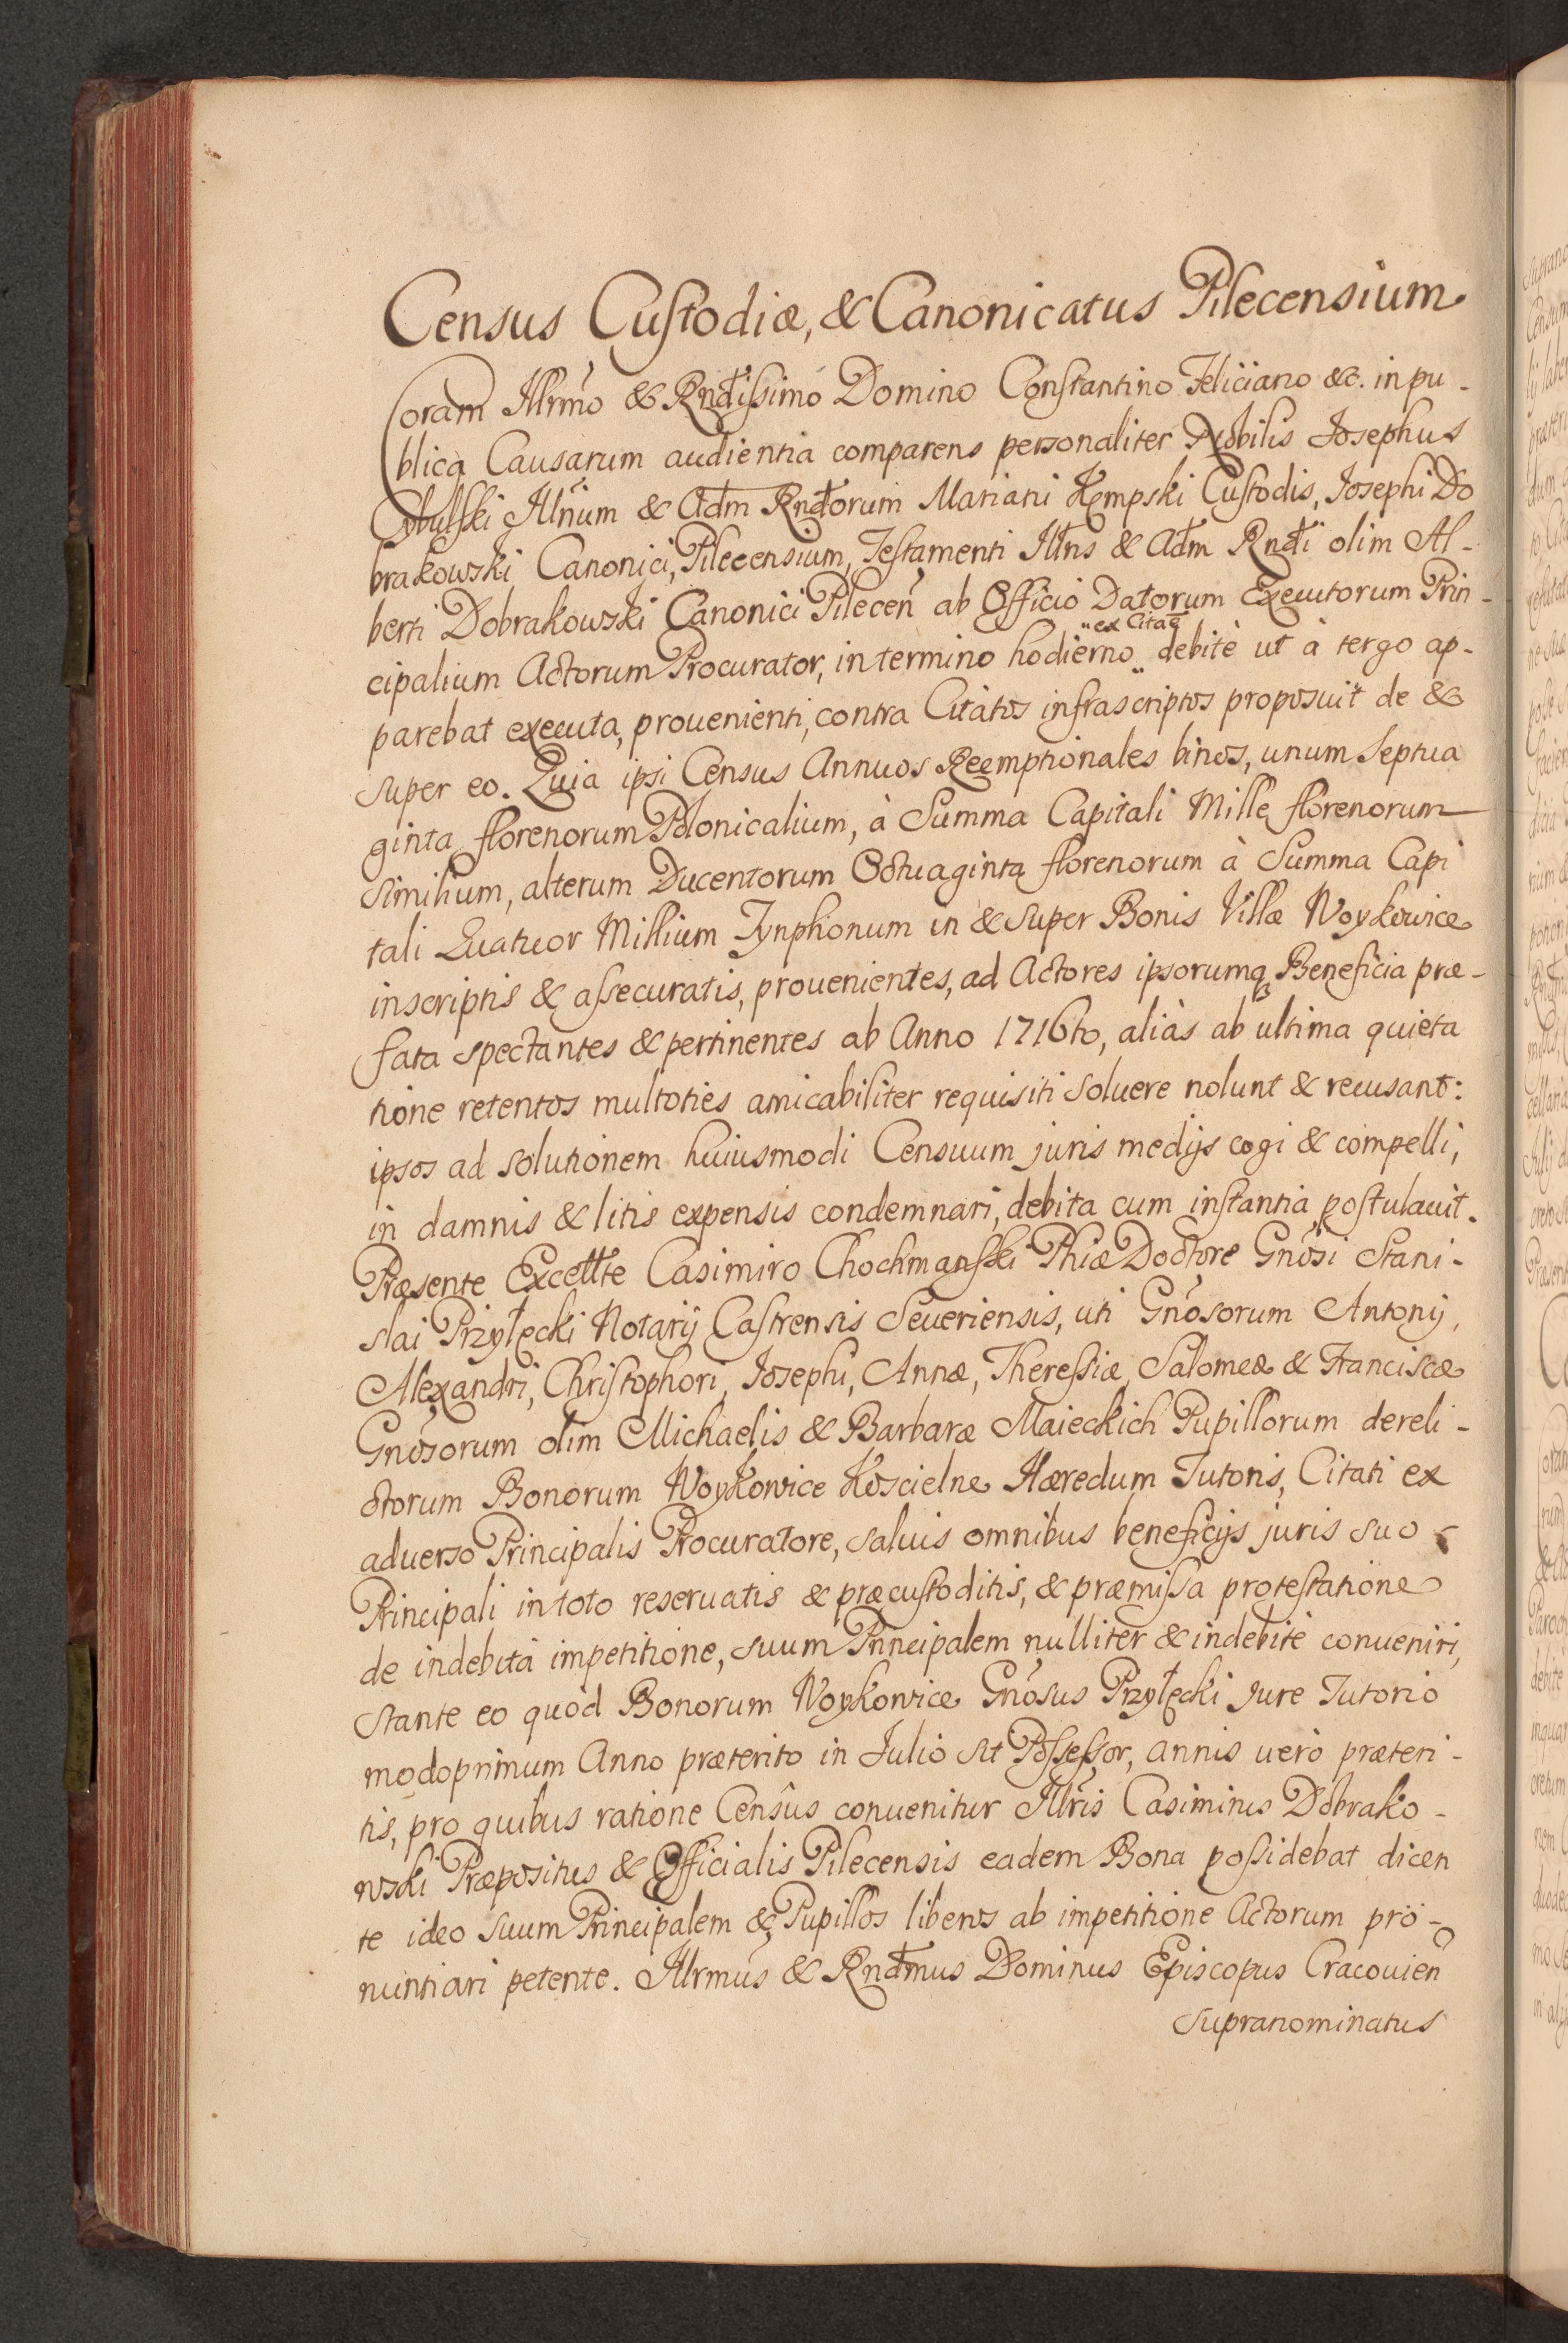 Census Custodiæ, & Canonicatus Pilecensium
Coram Illrmo & Rndissimo Domino Constantino Feliciano &c. in pu-
blica Causarum audientia comparens personaliter Nobilis Josephus
Cybulski Illrium & Adm Rndorum Mariani Kempski Custodis, Josephi Do
brakowski Canonici, Pilecensium, Testamenti Illris & Adm Rndi olim Al-
berti Dobrakowski Canonici Pilecen ab Officio Datorum Executorum Prin-
cipalium Actorum Procurator, in termino hodierno „ex Citãe„ debitè ut à tergo ap-
parebat executa, prouenienti, contra Citatos infrascriptos proposuit de &
super eo. Quia ipsi Census Annuos Reemptionales binos, unum Septua
ginta florenorum Polonicalium, à Summa Capitali Mille florenorum
similium, alterum Ducentorum Octuaginta florenorum à Summa Capi
tali Quatuor Millium Tynphonum in & super Bonis Villæ Woykowice
inscriptis & assecuratis, prouenientes, ad Actores ipsorumq Beneficia præ-
fata spectantes & pertinentes ab Anno 1716to, aliàs ab ultima quieta
tione retentos multoties amicabiliter requisiti soluere nolunt & recusant:
ipsos ad solutionem huiusmodi Censuum juris medijs cogi & compelli,
in damnis & litis expensis condemnari, debita cum instantia postulauit.
Præsente Excellte Casimiro Chochmanski Phiæ Doctore Gnosi Stani-
slai Przyłęcki Notarij Castrensis Seueriensis, uti Gnosorum Antonij,
Alexandri, Christophori, Josephi, Annæ, Theressiæ, Salomeæ & Franciscæ
Gnosorum olim Michaelis & Barbaræ Maieckich Pupillorum dereli-
ctorum Bonorum Woykowice Koscielne Hæredum Tutoris, Citati ex
aduerso Principalis Procuratore, saluis omnibus beneficijs juris suo
Principali in toto reseruatis & præcustoditis, & præmissa protestatione
de indebita impetitione, suum Principalem nulliter & indebitè conueniri,
stante eo quòd Bonorum Woykowice Gnosus Przyłęcki Jure Tutorio
modoprimum Anno præterito in Julio sit Possessor, annis uerò præteri-
tis, pro quibus ratione Censûs conuenitur Illris Casimirus Dobrako-
wski Præpositus & Officialis Pilecensis eadem Bona possidebat dicen
te ideo suum Principalem & Pupillos liberos ab impetitione Actorum pro-
nuntiari petente. Illrmus & Rndmus Dominus Episcopus Cracouien
supranominatus